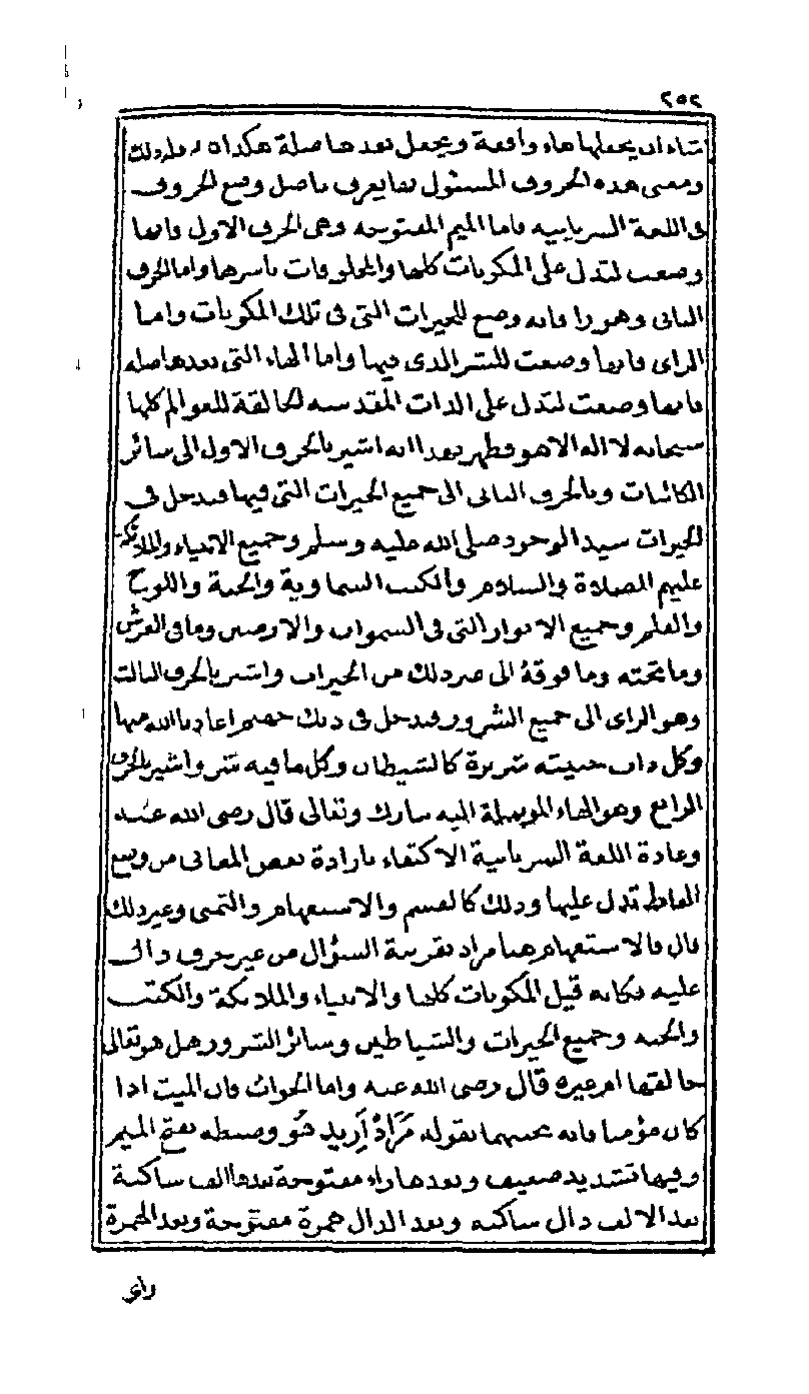 ٢٥٢
شاء ان يجعلها هاء واقعة ويجعل بعدها صلة هكذاه فله ذلك
ومعنى هذه الحروف المسئول بها يعرف باصل وضع الحروف
فى اللغة السريانية فاما الميم المفتوحه وهى الحرف الاول فانها
وضعت لتدل على المكونات كلها والمخلوقات باسرها واما الحرف
الثانى وهو را فانه وضع للخيرات التى فى تلك المكونات واما
الزاى فانها وضعت للشر الذى فيها واما الهاء التى بعدها صله
فانها وضعت لتدل على الذات المقدسه الخالقة للعوالم كلها
سبحانه لا اله الا هو فظهر بهذا انه اشير بالحرف الاول الى سائر
الكائنات وبالحرف الثانى الى جميع الخيرات التى فيها فيدخل فى
الخيرات سيد الوجود صلى الله عليه وسلم وجميع الانبياء والملائكة
عليهم الصلاة والسلام والكتب السماوية والجنة واللوح
والقلم وجميع الانوار التى فى السموات والارضين وما فى العرش
وما تحته وما فوقه الى غير ذلك من الخيرات واشير بالحرف الثالث
وهو الزاى الى جميع الشرور فيدخل فى ذلك جهنم اعاذنا الله منها
وكل ذات خبيثه شريرة كالشيطان وكل ما فيه شر واشير بالحرف
الرابع وهو الهاء الموصلة اليه تبارك وتعالى قال رضى الله عنه
وعادة اللغة السريانية الاكتفاء بارادة بعض المعانى من وضع
الفاظ تدل عليها وذلك كالقسم والاستفهام والتمنى وغير ذلك
قال فالاستفهام هنا مراد بقرينة السؤال من غير حرف دال
عليه فكانه قيل المكونات كلها والانبياء والملائكة والكتب
والجنه وجميع الخيرات والشياطين وسائر الشرور هل هو تعالى
خالقها ام غيره قال رضى الله عنه واما الجواب فان الميت اذا
كان مؤمنا فانه يجيبهما بقوله مَرَادْ أَزِيد هُو وضبطه بفتح الميم
وفيها تشديد ضعيف وبعدها راء مفتوحة بعدها الف ساكنة
بعد الالف دال ساكنه وبعد الدال همزة مفتوحة وبعد الهمزة
زاى